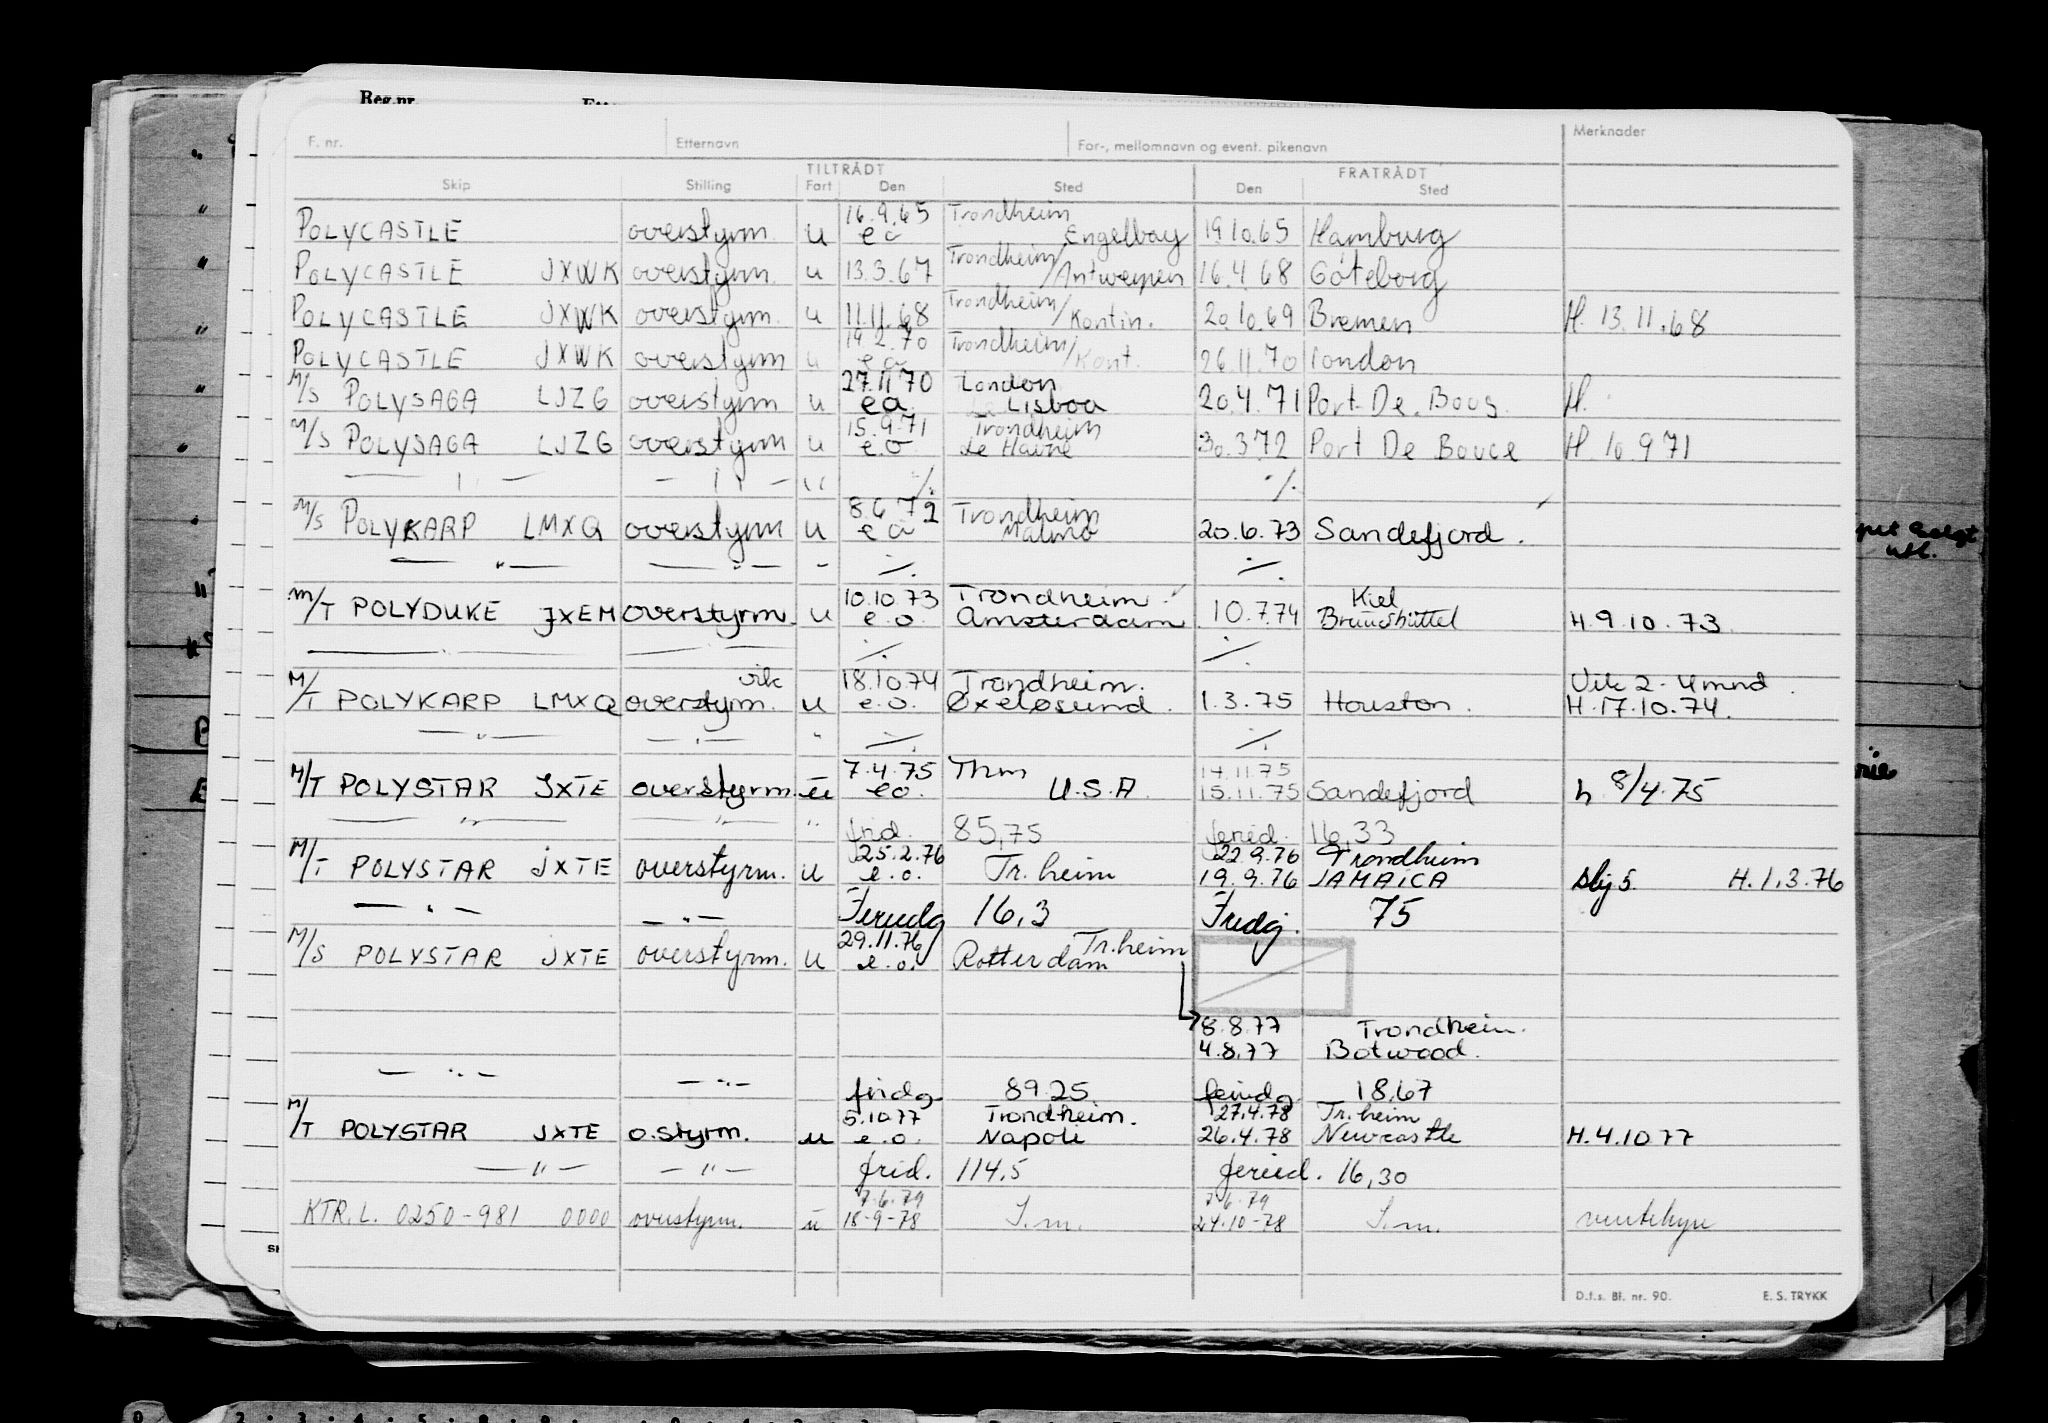 Reg.nr.
F. nr. Etternavn For-, mellomnavn og event. pikenavn Merknader
TILTRÅDT FRATRÅDT
Skip Stilling Fart Den Sted Den Sted
16.9.65 Trondheim
POLYCASTLE overstyrm. u e o Engelbay 19 10.65 Hamburg
Trondheim/
POLYCASTLE JXWK overstyrm. u 13.3.67 Antwerpen 16.4.68 Göteborg
Trondheim/
POLYCASTLE JXWK overstyrm. u 11.11.68 Kontin. 20.10.69 Bremen H. 13.11.68
14.2.70 Trondheim/
POLYCASTLE JXWK overstyrm u e o Kont. 26.11.70 London
27.11 70 London
M/S POLYSAGA LJZG overstyrm u e o. Lisboa 20.4.71 Port De. Boug H.
15.9.71 Trondheim
M/S POLYSAGA LJZG overstyrm u e.o. Le Havre 30.3.72 Port De Bouce H 10.9 71
— " — — " — " ./. ./.
8.6 72 Trondheim
M/S POLYKARP LMXQ overstyrm u e o Malmö 20.6.73 Sandefjord.
— " — — " — - ./. ./.
10.10.73 Trondheim. Kiel
M/T POLYDUKE JXEM overstyrm. u e.o. Amsterdam 10.7.74 Brunsbüttel H.9.10.73
— " — — " — ./. ./.
vik 18.10.74 Trondheim. Vik 2-4 mnd.
M/T POLYKARP LMXQ overstyrm. u e.o. Øxeløsund. 1.3.75 Houston. H.17.10.74.
— " — — " — " ./. ./.
7.4.75 Thm 14.11.75
M/T POLYSTAR JXTE overstyrm. u eo. U.S.A. 15.11.75 Sandefjord h 8/4.75
— " — — " — " frid. 85,75 feried. 16,33
25.2.76 22 9.76 Trondheim
M/T POLYSTAR JXTE overstyrm. u e.o. Tr.heim 19.9.76 JAMAICA H.1.3.76
— " — — " — 16,3 75
29.11.76 Tr.heim
M/S POLYSTAR JXTE overstyrm. u e.o. Rotterdam
8.8.77 Trondheim.
4.8.77 Botwood.
— " — — " — fridg 89.25 feridg 18,67
5.10.77 Trondheim. 27.4.78 Tr.heim
M/T POLYSTAR JXTE o.styrm. u e.o. Napoli 26.4.78 Newcastle H.4.10 77
— " — — " — frid. 114.5 feried. 16,30
7.6.79 7.6.79
KTR.L. 0250-981 0000 overstyrm. u 18-9-78 S.m. 24.10-78 S.m. ventehyre
D.f.s. Bl. nr. 90. E. S. TRYKK